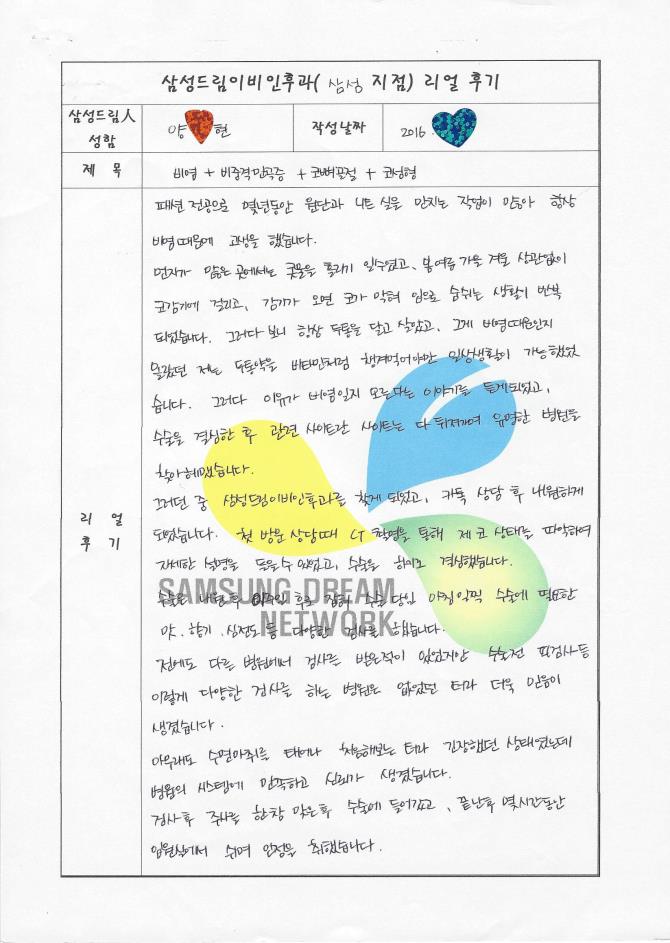 삼성드림이비인후과( 삼성 지점) 리얼 후기
삼성드림人
성함
양 현
작성날짜
2016.
제 목
비염 + 비중격만곡증 + 코뼈골절 + 코성형
리 얼
후 기
패션 전공으로 몇년동안 원단과 니트 실을 만지는 작업이 많아 항상
비염때문에 고생을 했습니다.
먼지가 많은 곳에서는 콧물을 흘리기 일수였고, 봄여름 가을 겨울 상관없이
코감기에 걸리고, 감기가 오면 코가 막혀 입으로 숨쉬는 생활이 반복
되었습니다. 그러다 보니 항상 두통을 달고 살았고, 그게 비염때문인지
몰랐던 저는 두통약을 비타민처럼 챙겨먹어야만 일상생활이 가능했었
습니다. 그러다 이유가 비염일지 모른다는 이야기를 듣게되었고,
수술을 결심한 후 관련 사이트란 사이트는 다 뒤져가며 유명한 병원들
찾아헤맸습니다.
그러던 중 삼성드림이비인후과를 찾게 되었고, 카톡 상담 후 내원하게
되었습니다. 첫 방문 상담때 CT 촬영을 통해 제 코 상태를 파악하여
자세한 설명을 들을 수 있었고, 수술을 하기로 결심했습니다.
SAMSUNG DREAM
NETWORK
수술은 내원 후 후로 잡혀 수술 당일 아침일찍 수술에 필요한
맛, 향기, 심전도 등 다양한 검사를 하였습니다.
전에도 다른 병원에서 검사를 받은적이 있었지만 수술전 피검사등
이렇게 다양한 검사를 하는 병원은 없었던 터라 더욱 믿음이
생겼습니다.
아무래도 수면마취를 태어나 처음해보는 터라 긴장했던 상태였는데
병원의 시스템에 만족하고 신뢰가 생겼습니다.
검사후 주사를 한창 맞은후 수술에 들어갔고, 끝난후 몇시간동안
입원실에서 쉬며 안정을 취했습니다.